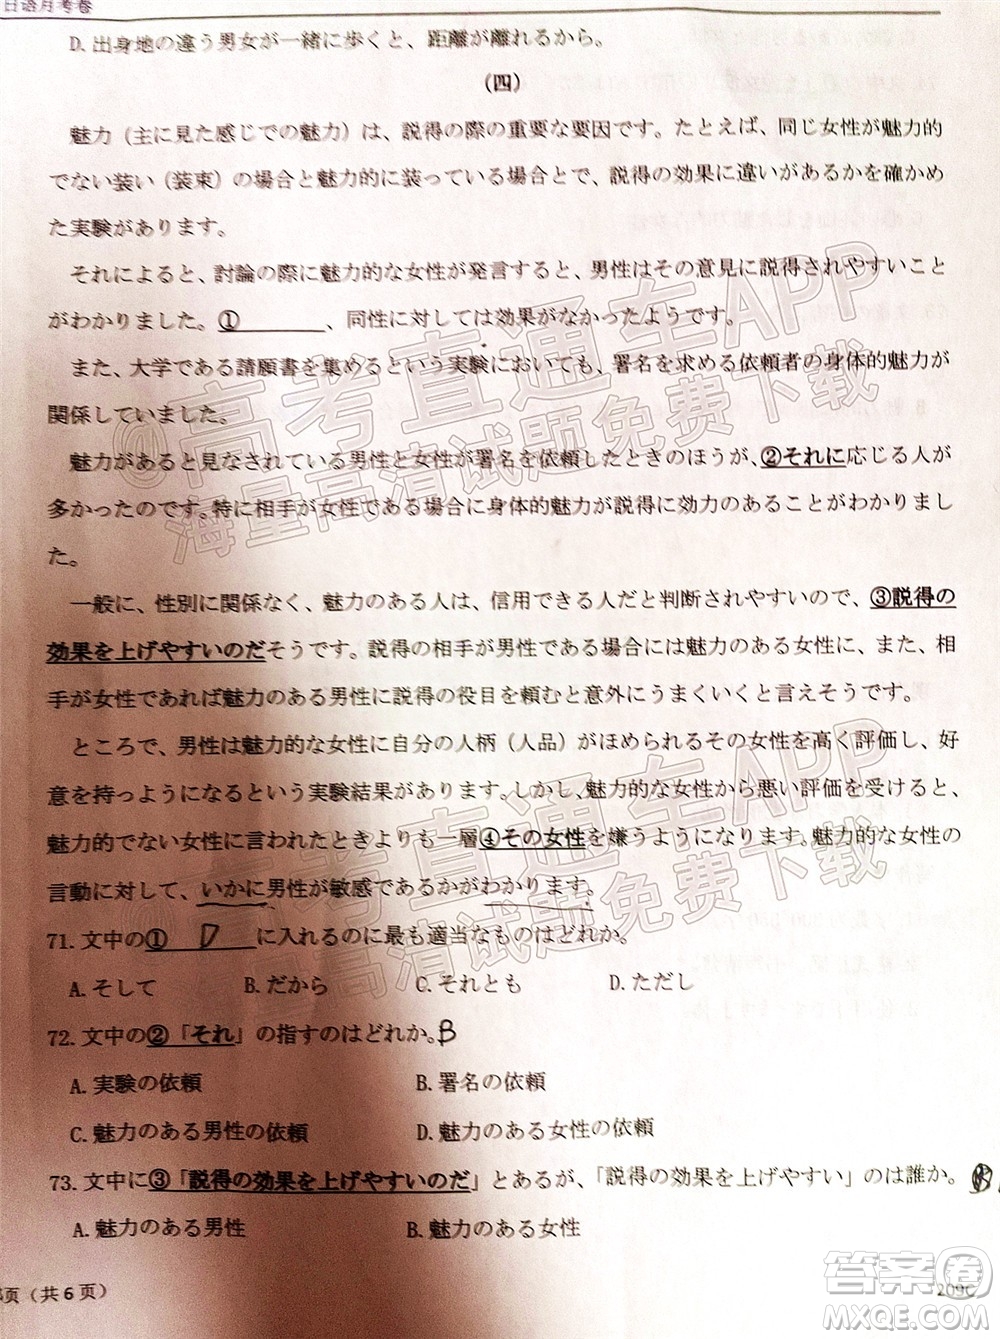 日语月考卷
D. 出身地の違う男女が一緒に歩くと、距離が離れるから。
（四）
魅力（主に見た感じでの魅力）は、説得の際の重要な要因です。たとえば、同じ女性が魅力的
でない装い（装束）の場合と魅力的に装っている場合とで、説得の効果に違いがあるかを確かめ
た実験があります。
それによると、討論の際に魅力的な女性が発言すると、男性はその意見に説得されやすいこと
がわかりました。①＿＿＿＿、同性に対しては効果がなかったようです。
また、大学である請願書を集めるという実験においても、署名を求める依頼者の身体的魅力が
関係していました。
魅力があると見なされている男性と女性が署名を依頼したときのほうが、②それに応じる人が
多かったのです。特に相手が女性である場合に身体的魅力が説得に効力のあることがわかりまし
た。
一般に、性別に関係なく、魅力のある人は、信用できる人だと判断されやすいので、③説得の
効果を上げやすいのだそうです。説得の相手が男性である場合には魅力のある女性に、また、相
手が女性であれば魅力のある男性に説得の役目を頼むと意外にうまくいくと言えそうです。
ところで、男性は魅力的な女性に自分の人柄（人品）がほめられるその女性を高く評価し、好
意を持つようになるという実験結果があります。しかし、魅力的な女性から悪い評価を受けると、
魅力的でない女性に言われたときよりも一層④その女性を嫌うようになります。魅力的な女性の
言動に対して、いかに男性が敏感であるかがわかります。
71. 文中の①＿D＿に入れるのに最も適当なものはどれか。
A. そして B. だから C. それとも D. ただし
72. 文中の②「それ」の指すのはどれか。B
A. 実験の依頼 B. 署名の依頼
C. 魅力のある男性の依頼 D. 魅力のある女性の依頼
73. 文中に③「説得の効果を上げやすいのだ」とあるが、「説得の効果を上げやすい」のは誰か。
A. 魅力のある男性 B. 魅力のある女性
页（共 6 页）
209C
@高考直通车APP
海量高清试题免费下载
高考直通车APP
海量高清试题免费下载
答案圈
MXQE.COM